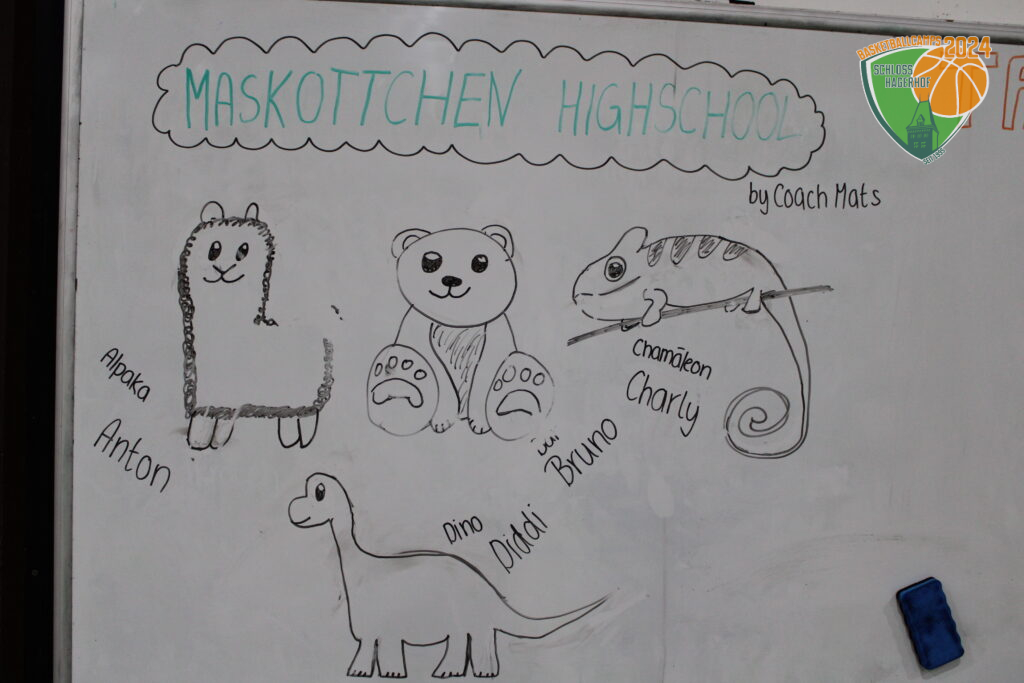 MASKOTTCHEN HIGHSCHOOL
by Coach Mats
BASKETBALLCAMPS 2024
SCHLOSS
HAGERHOF
Alpaka
Anton
Chamäleon
Charly
Bruno
Dino
Diddi